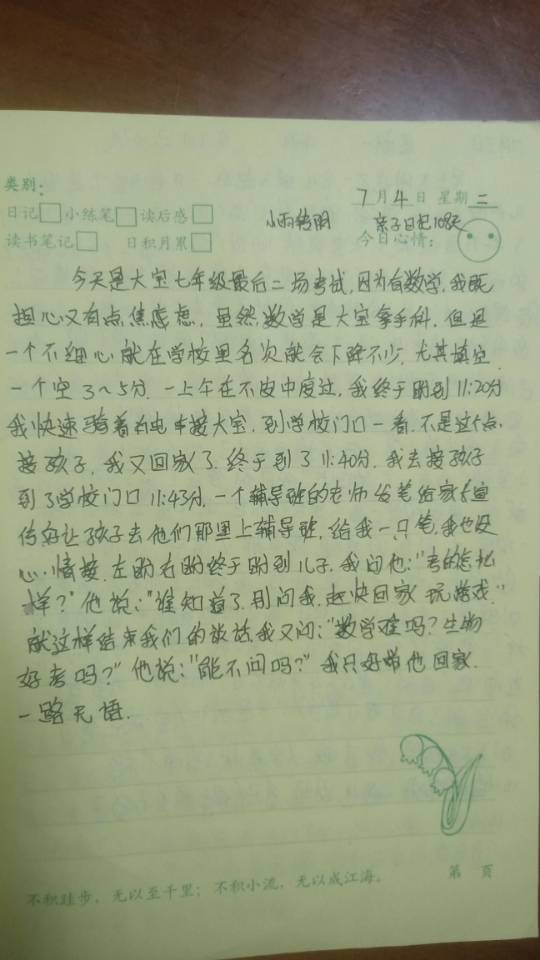 类别:
7月4日 星期二
日记 小练笔 读后感
小雨转阴 亲子日记108天
读书笔记 日积月累 今日心情:
今天是大宝七年级最后二场考试,因为有数学,我既
担心又有点焦虑虑,虽然数学是大宝拿手科,但是
一个不细心就在学校里名次就会下降不少,尤其填空
一个空3~5分.一上午在不安中度过,我终于盼到11:20分
我快速骑着电车接大宝,到学校门口一看.不是这个点
接孩子,我又回家了.终于到了11:40分,我去接孩子
到了学校门口11:43分,一个辅导班的老师发笔给家长宣
传好让孩子去他们那里上辅导班,给我一只笔,我也没
心情接,左盼右盼终于盼到儿子,我问他:"考的怎么
样?"他说:"谁知道了.别问我.赶快回家玩游戏."
就这样结束我们的谈话我又问:"数学难吗?生物
好考吗?"他说:"能不问吗?"我只好带他回家.
一路无语.
不积跬步,无以至千里;不积小流,无以成江海。 第 页